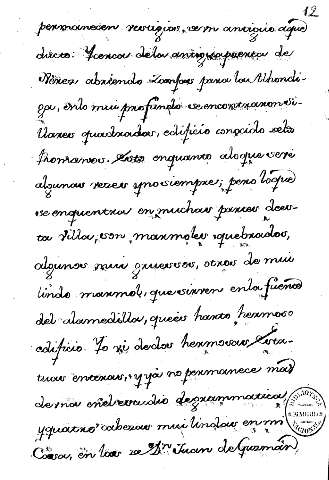 12
permanecen vestigios, de un antiguo aque
ducto. Y cerca dela antigua puerta de
Xerez abriendo Zanjas para la Alhondi
ga, en lo mui profundo se encontraron si-
llares quadrados, edificio conocido delos
Romanos. Esto en quanto aloque se vè
algunas vezes y no siempre; pero loque
se enquentra en muchas partes de es-
ta villa, son marmoles quebrados,
algunos mui gruessos, otros de mui
lindo marmol, que sirven en la fuente
del alamedilla, que es harto hermoso
edificio. Yo vi dedos hermosas Esta-
tuas enteras, y yà no permanece mas
de na en el estudio de grammatica,
y quatro cabezas mui lindas en m
Casa, en las de Dn. Juan de Guzmàn,
BIBLIOTECA